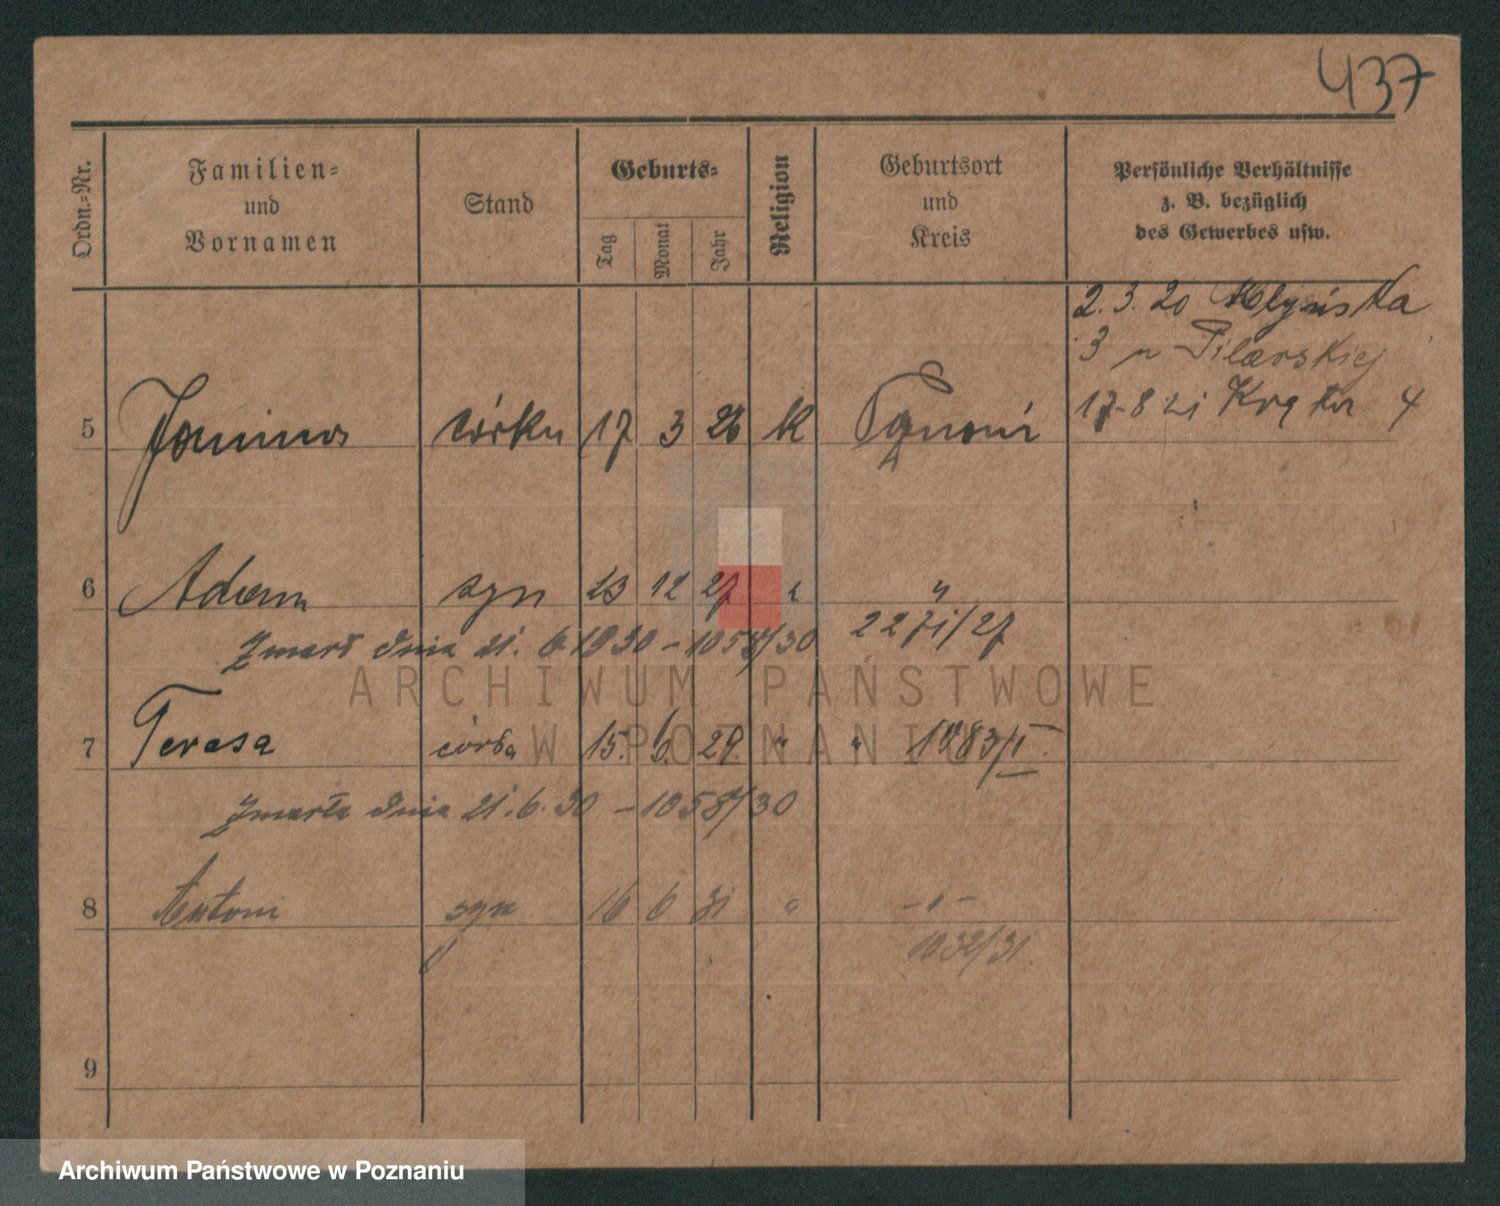 437
Ordn.-Nr.
Familien-
und
Vornamen
Stand
Geburts-
Tag
Monat
Jahr
Religion
Geburtsort
und
Kreis
Persönliche Verhältnisse
z. B. bezüglich
des Gewerbes usw.
2.3.20 Młyńska
3 Pilarskiej
17-8 21 Kręta 4
5 Janina córka 17 3 26 k Poznań
6 Adam syn 23 12 27 " "
2271/27
Zmarł dnia 21. 6 1930 - 1058/30
7 Teresa córka 15. 6. 29. " " 1083/I
Zmarła dnia 21.6.30 - 1058/30
8 Antoni syn 16 6 31 " -"-
1032/31.
9
ARCHIWUM PAŃSTWOWE
W POZNANIU
Archiwum Państwowe w Poznaniu